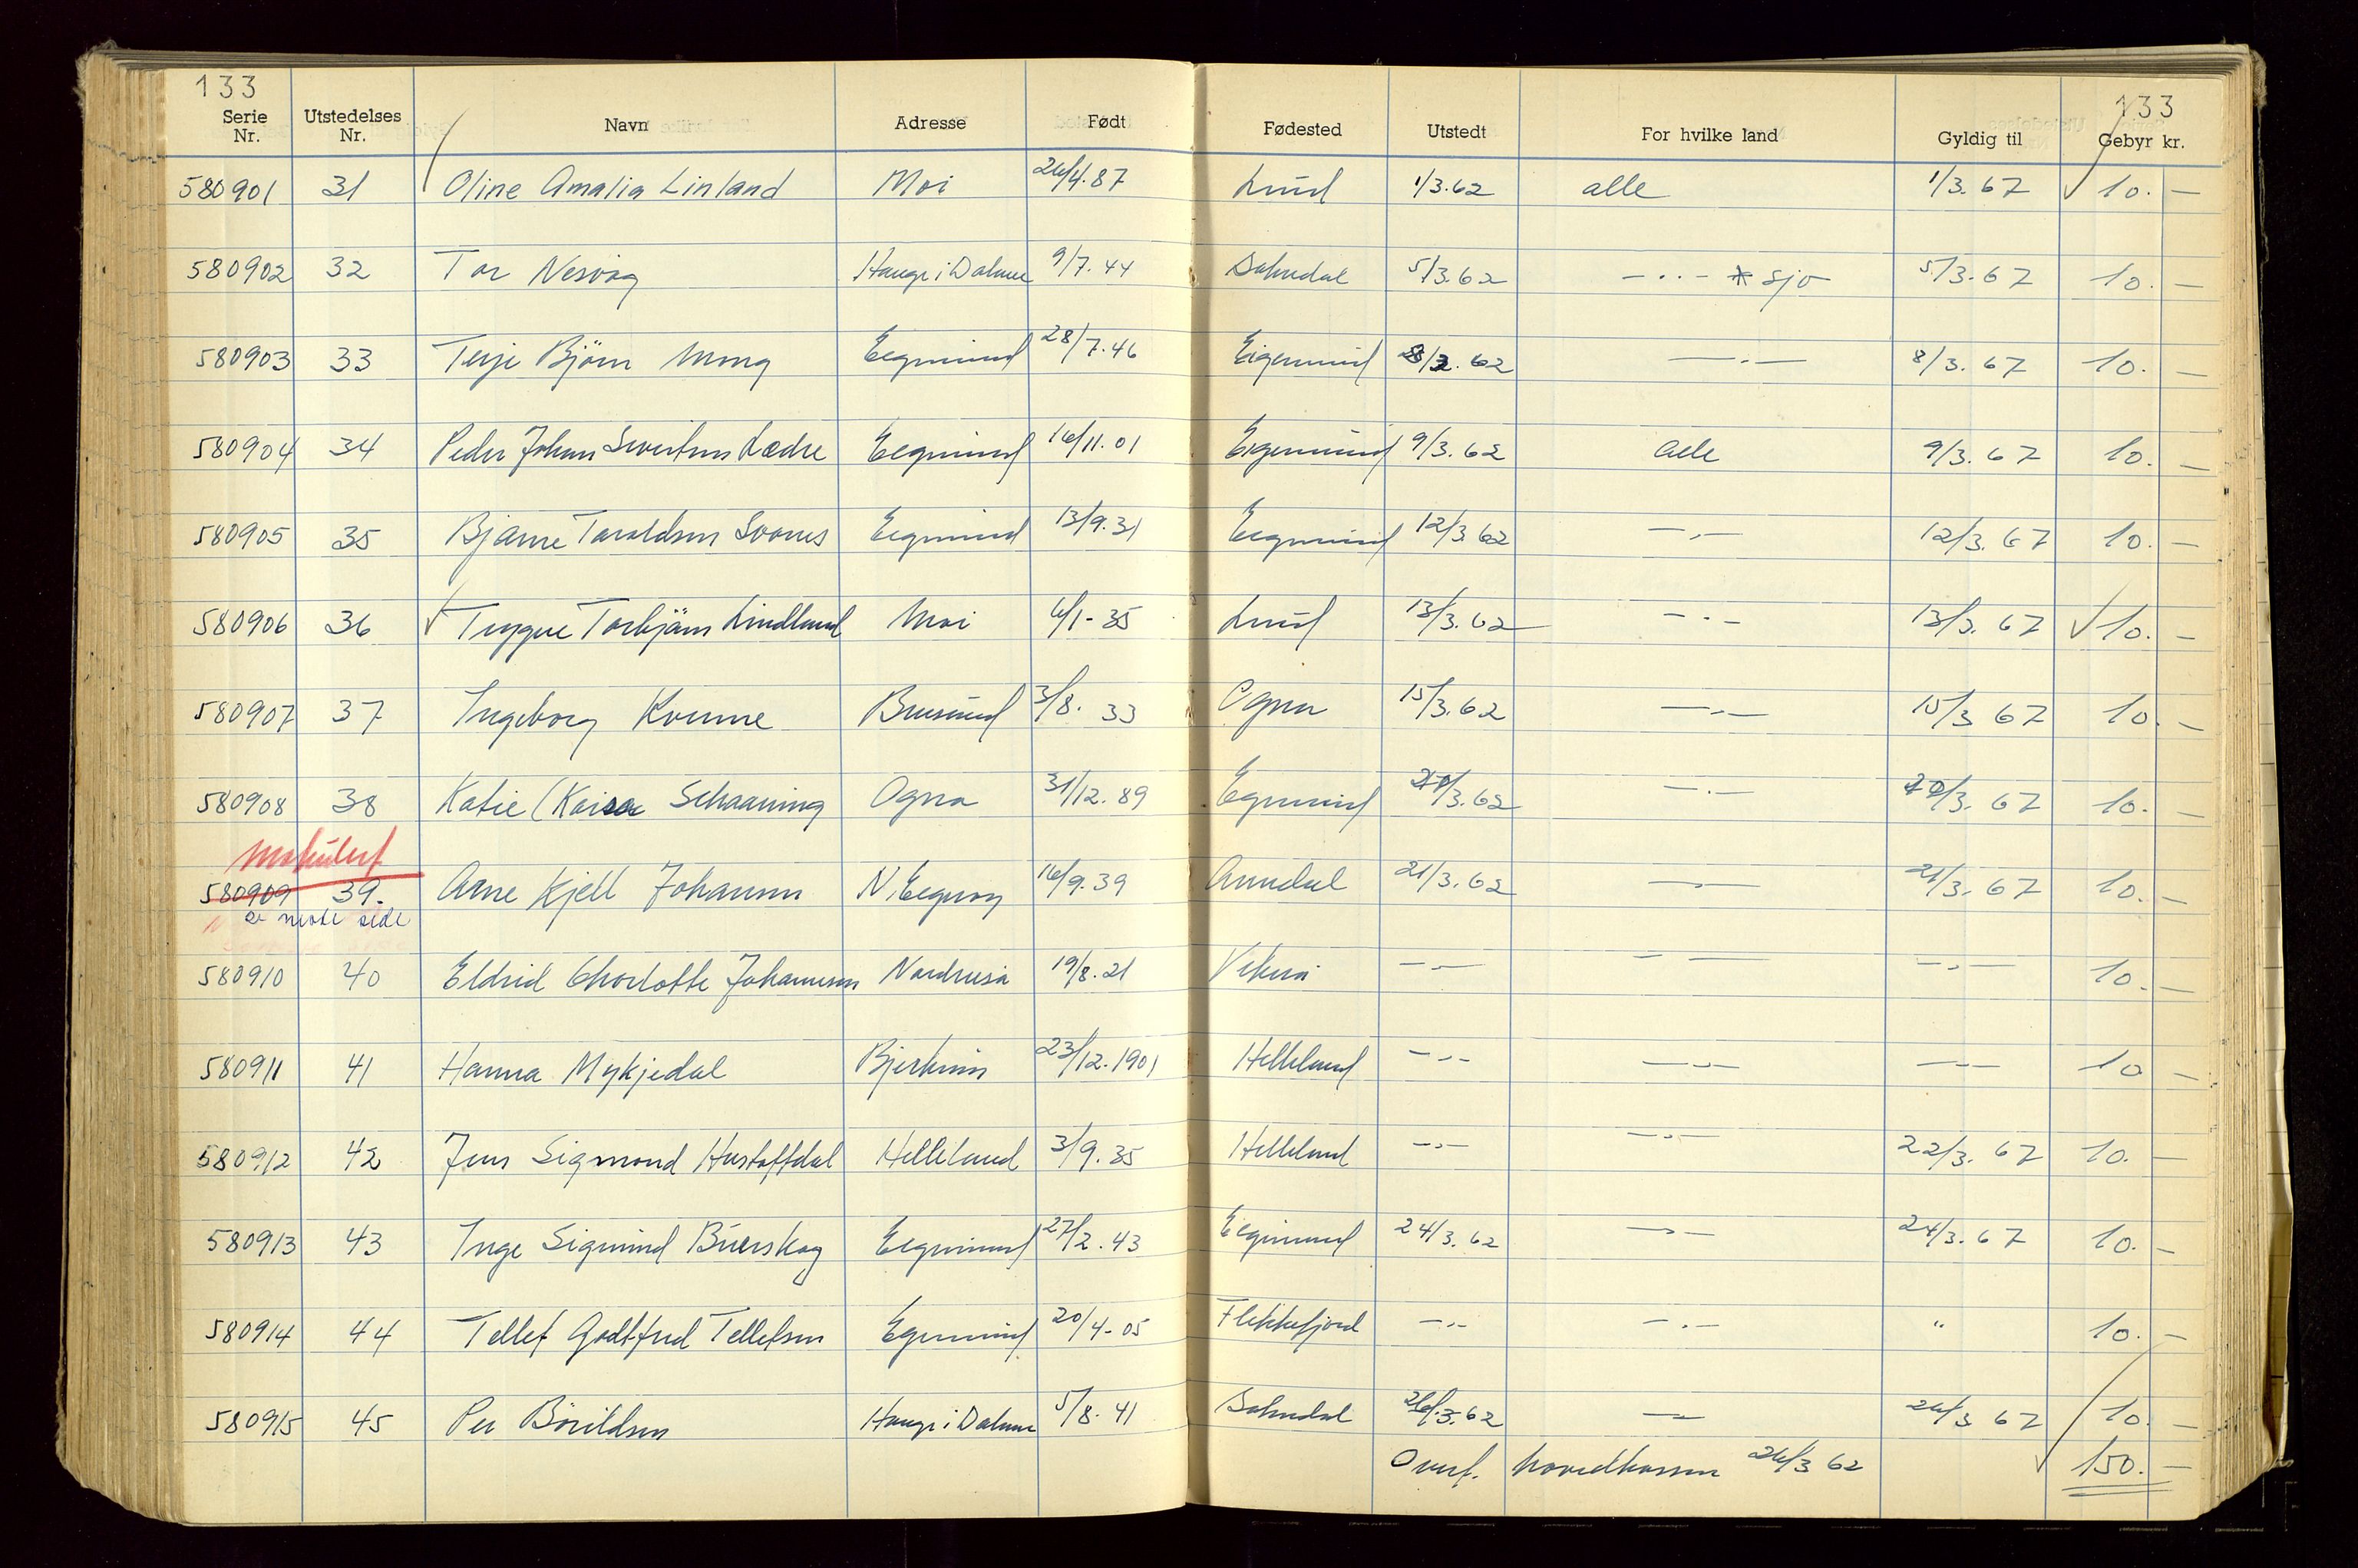 133 133
Serie Nr. Utstedelses Nr. Navn Adresse Født Fødested Utstedt For hvilke land Gyldig til Gebyr kr.
580901 31 Oline Amalia Linland Moi 26/4.87 Lund 1/3.62 alle 1/3.67 10.—
580902 32 Tor Nesvåg Hauge i Dalane 9/7.44 Sokndal 5/3.62 —..— sjø 5/3.67 10.—
580903 33 Terje Björn Mong Eegersund 28/7.46 Eigersund 8/3.62 —.— 8/3.67 10.—
580904 34 Peder Johan Sivertsen Lædre Eegersund 16/11.01 Eigersund 9/3.62 alle 9/3.67 10.—
580905 35 Bjarne Taraldsen Svanes Eegersund 13/9.31 Eegersund 12/3.62 —.— 12/3.67 10.—
580906 36 Trygve Torbjörn Lindland Moi 6/1-35 Lund 13/3.62 —.— 13/3.67 10.—
580907 37 Ingeborg Kvinne Brusand 3/8.33 Ogna 15/3.62 —.— 15/3 67 10.—
580908 38 Katie (Kaisa Schaanning Ogna 31/12.89 Egersund 20/3.62 —.— 20/3.67 10.—
Makulert
580909 39. Arne Kjell Johannsen N. Eegerøy 16/9.39 Arendal 21/3.62 —.— 21/3.67 10.—
se neste side
580910 40 Eldrid Charlotte Johannesen Nordrusa 19/8.21 —.— —.— —.— 10.—
580911 41 Hanna Mykjedal Bjerkreim 23/12.1901 Helleland —.— —.— —.— 10 —
580912 42 Jens Sigmond Hustoftdal Helleland 3/9.35 Helleland —.— —.— 22/3.67 10.—
580913 43 Inge Sigmund Buerskog Eegersund 27/2.43 Eigersund 24/3.62 —.— 24/3.67 10.—
580914 44 Tellef Godtfred Tellefsen Egersund 20/4-05 Flekkefjord —.— —.— " 10.—
580915 45 Per Bövildsen Hauge i Dalane 5/8.41 Sokndal 26/3.62 —.— 26/3 67 10.—
Overf. hovedkassen 26/3 62 150.—